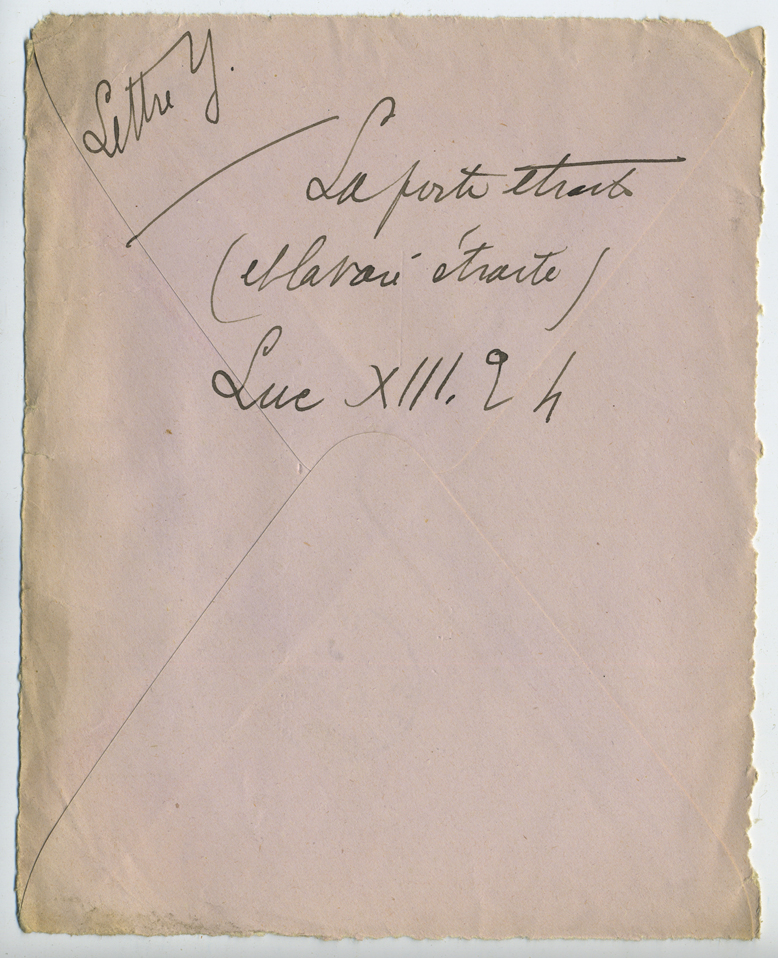 Lettre Y.
La porte étroite
(et la voie étroite)
Luc XIII. 24